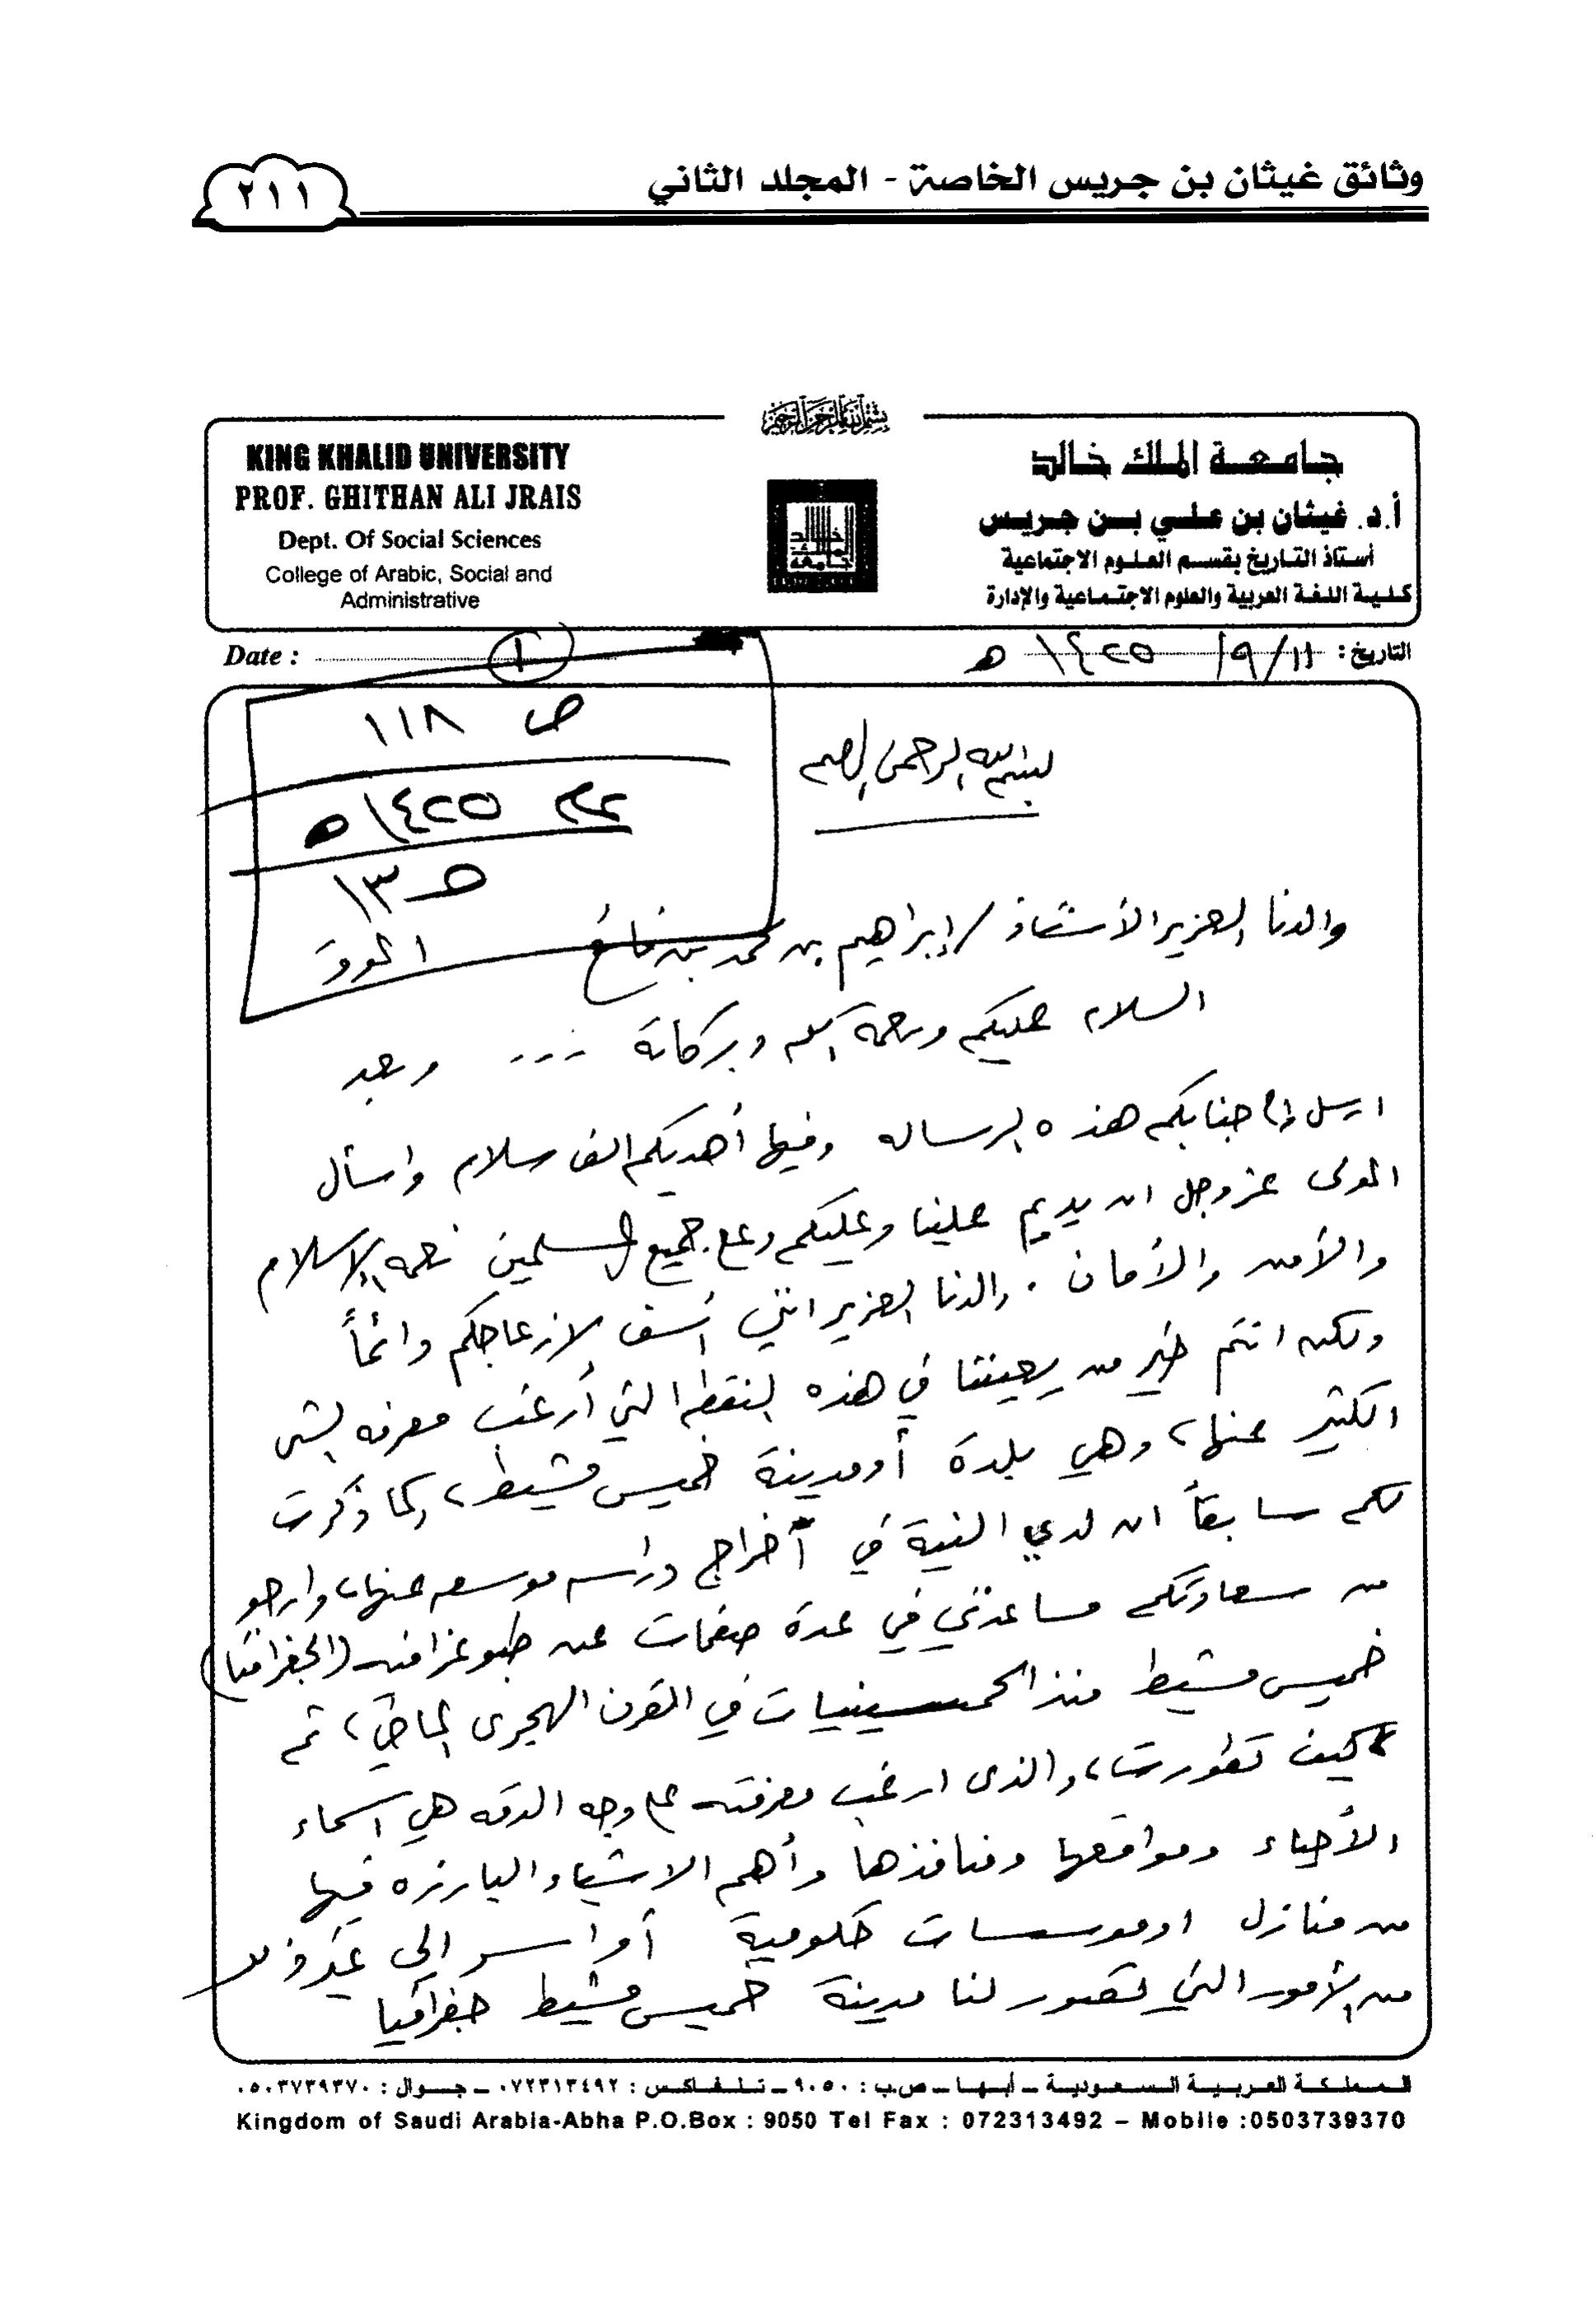 وثائق غيثان بن جريس الخاصة - المجلد الثاني
٢١١
بسم الله الرحمن الرحيم
KING KHALID UNIVERSITY
PROF. GHITHAN ALI JRAIS
Dept. Of Social Sciences
College of Arabic, Social and
Administrative
جامعة الملك خالد
أ.د. غيثان بن علي بن جريس
أستاذ التاريخ بقسم العلوم الاجتماعية
كلية اللغة العربية والعلوم الاجتماعية والإدارة
خالد
الملك
جامعة
التاريخ : ١١/ ٩/ ١٤٢٥ هـ
Date :
١
ص ١١٨
عام ١٤٢٥ هـ
حـ ١٣
بسم الله الرحمن الرحيم
والدنا العزيز الأستاذ / إبراهيم بن محمد بن فائع الموقر
السلام عليكم ورحمة الله وبركاته ... وبعد
ارسل إلى جنابكم هذه الرساله وفيها أهديكم الف سلام واسأل
المولى عز وجل ان يديم علينا وعليكم وعلى جميع المسلمين نعمه الإسلام
والأمن والأمان . والدنا العزيز انني آسف لازعاجكم دائماً
ولكن انتم خير من يعيننا في هذه النقطه التي أرغب معرفه الشى
الكثير عنها، وهي بلدة أو مدينة خميس مشيط، وكما ذكرت
لكم سابقاً ان لدي النية في أخراج دراسه موسعه عنها، وارجو
من سعادتكم مساعدتي في عدة صفحات عن طبوغرافيه (الجغرافيا)
خميس مشيط منذ الخمسينيات في القرن الهجرى الماضي، ثم
كيف تطورت، والذى ارغب معرفته على وجه الدقه هي اسماء
الأحياء ومواقعها ومنافذها وأهم الاشياء البارزه فيها
من منازل او موسسات حكومية أو اسر الى غير ذلك
من الأمور التي تصور لنا مدينة خميس مشيط جغرافيا
المملكة العربية السعودية – أبها – ص.ب : ٩٠٥٠ – تلفاكس : ٠٧٢٣١٣٤٩٢ – جوال : ٠٥٠٣٧٣٩٣٧٠
Kingdom of Saudi Arabia-Abha P.O.Box : 9050 Tel Fax : 072313492 – Mobile :0503739370